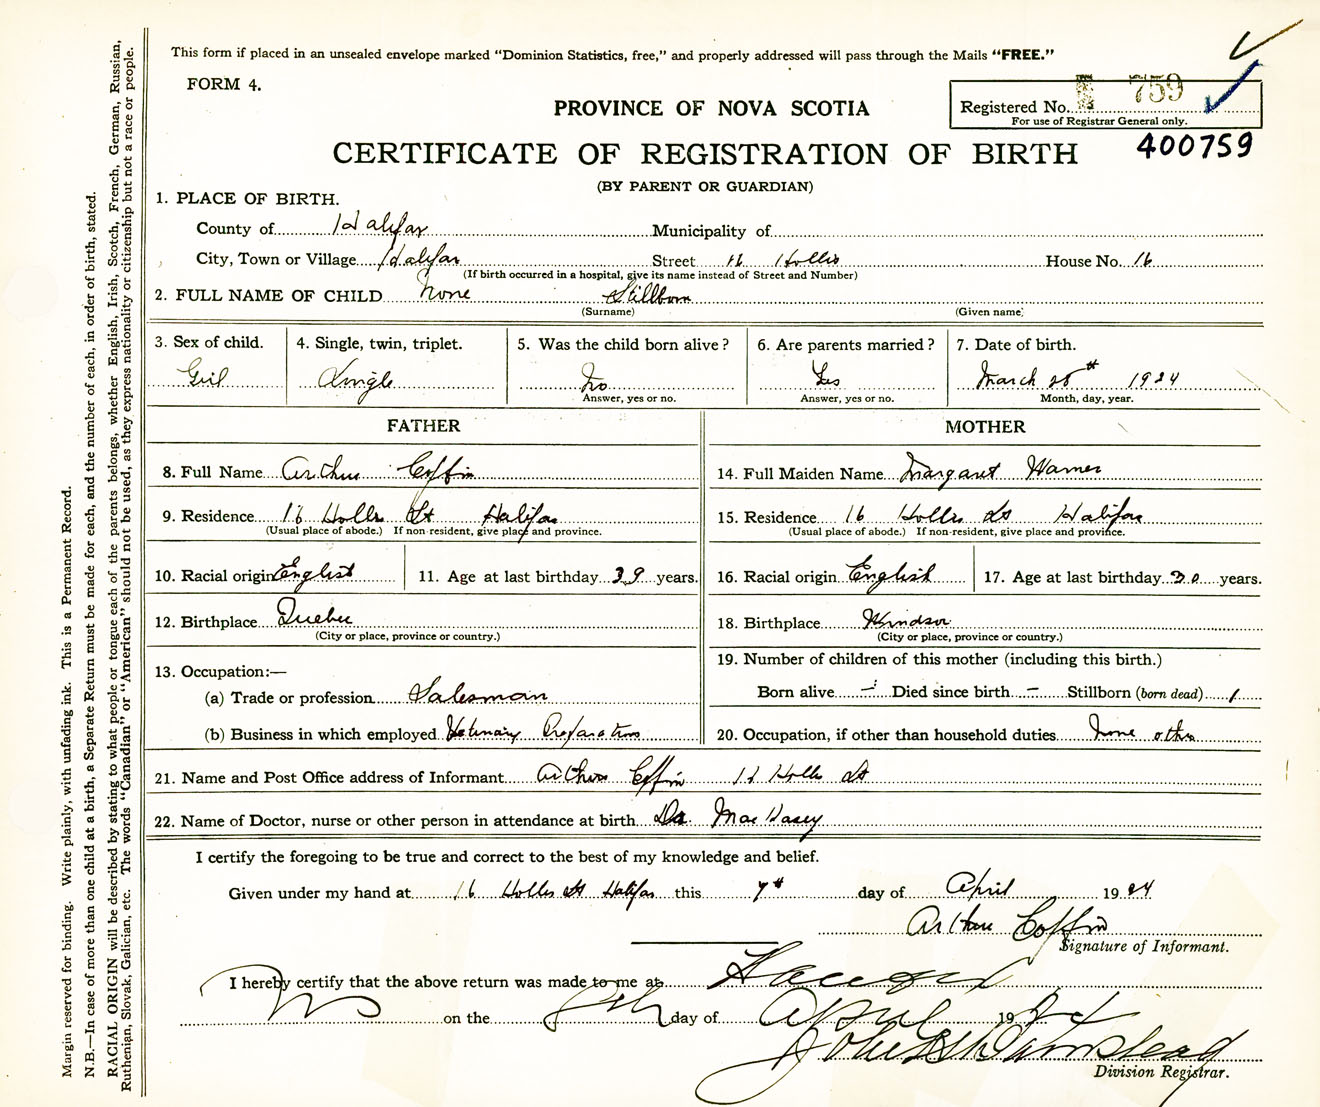 This form if placed in an unsealed envelope marked "Dominion Statistics, free," and properly addressed will pass through the Mails "FREE."
FORM 4.
Registered No. 759
For use of Registrar General only.
400759
PROVINCE OF NOVA SCOTIA
CERTIFICATE OF REGISTRATION OF BIRTH
(BY PARENT OR GUARDIAN)
1. PLACE OF BIRTH.
County of Halifax Municipality of
City, Town or Village Halifax Street 16 Hollis House No. 16
(If birth occurred in a hospital, give its name instead of Street and Number)
2. FULL NAME OF CHILD None Stillborn
(Surname) (Given name)
3. Sex of child. 4. Single, twin, triplet. 5. Was the child born alive? 6. Are parents married? 7. Date of birth.
Girl Single No Yes March 28th 1924
Answer, yes or no. Answer, yes or no. Month, day, year.
FATHER MOTHER
8. Full Name Arthur Coffin 14. Full Maiden Name Margaret Warner
9. Residence 16 Hollis St Halifax 15. Residence 16 Hollis St Halifax
(Usual place of abode.) If non-resident, give place and province. (Usual place of abode.) If non-resident, give place and province.
10. Racial origin English 11. Age at last birthday 39 years. 16. Racial origin English 17. Age at last birthday 30 years.
12. Birthplace Quebec 18. Birthplace Windsor
(City or place, province or country.) (City or place, province or country.)
13. Occupation:— 19. Number of children of this mother (including this birth.)
(a) Trade or profession Salesman Born alive — Died since birth — Stillborn (born dead) 1
(b) Business in which employed Veterinary Preparations 20. Occupation, if other than household duties None other
21. Name and Post Office address of Informant Arthur Coffin 16 Hollis St
22. Name of Doctor, nurse or other person in attendance at birth Dr.
I certify the foregoing to be true and correct to the best of my knowledge and belief.
Given under my hand at 16 Hollis St Halifax this 7th day of April 1924
Arthur Coffin
Signature of Informant.
I hereby certify that the above return was made to me at
on the day of April 1924
Division Registrar.
Margin reserved for binding. Write plainly, with unfading ink. This is a Permanent Record.
N.B.—In case of more than one child at a birth, a Separate Return must be made for each, and the number of each, in order of birth, stated.
RACIAL ORIGIN will be described by stating to what people or tongue each of the parents belongs, whether English, Irish, Scotch, French, German, Russian,
Ruthenian, Slovak, Galician, etc. The words "Canadian" or "American" should not be used, as they express nationality or citizenship but not a race or people.